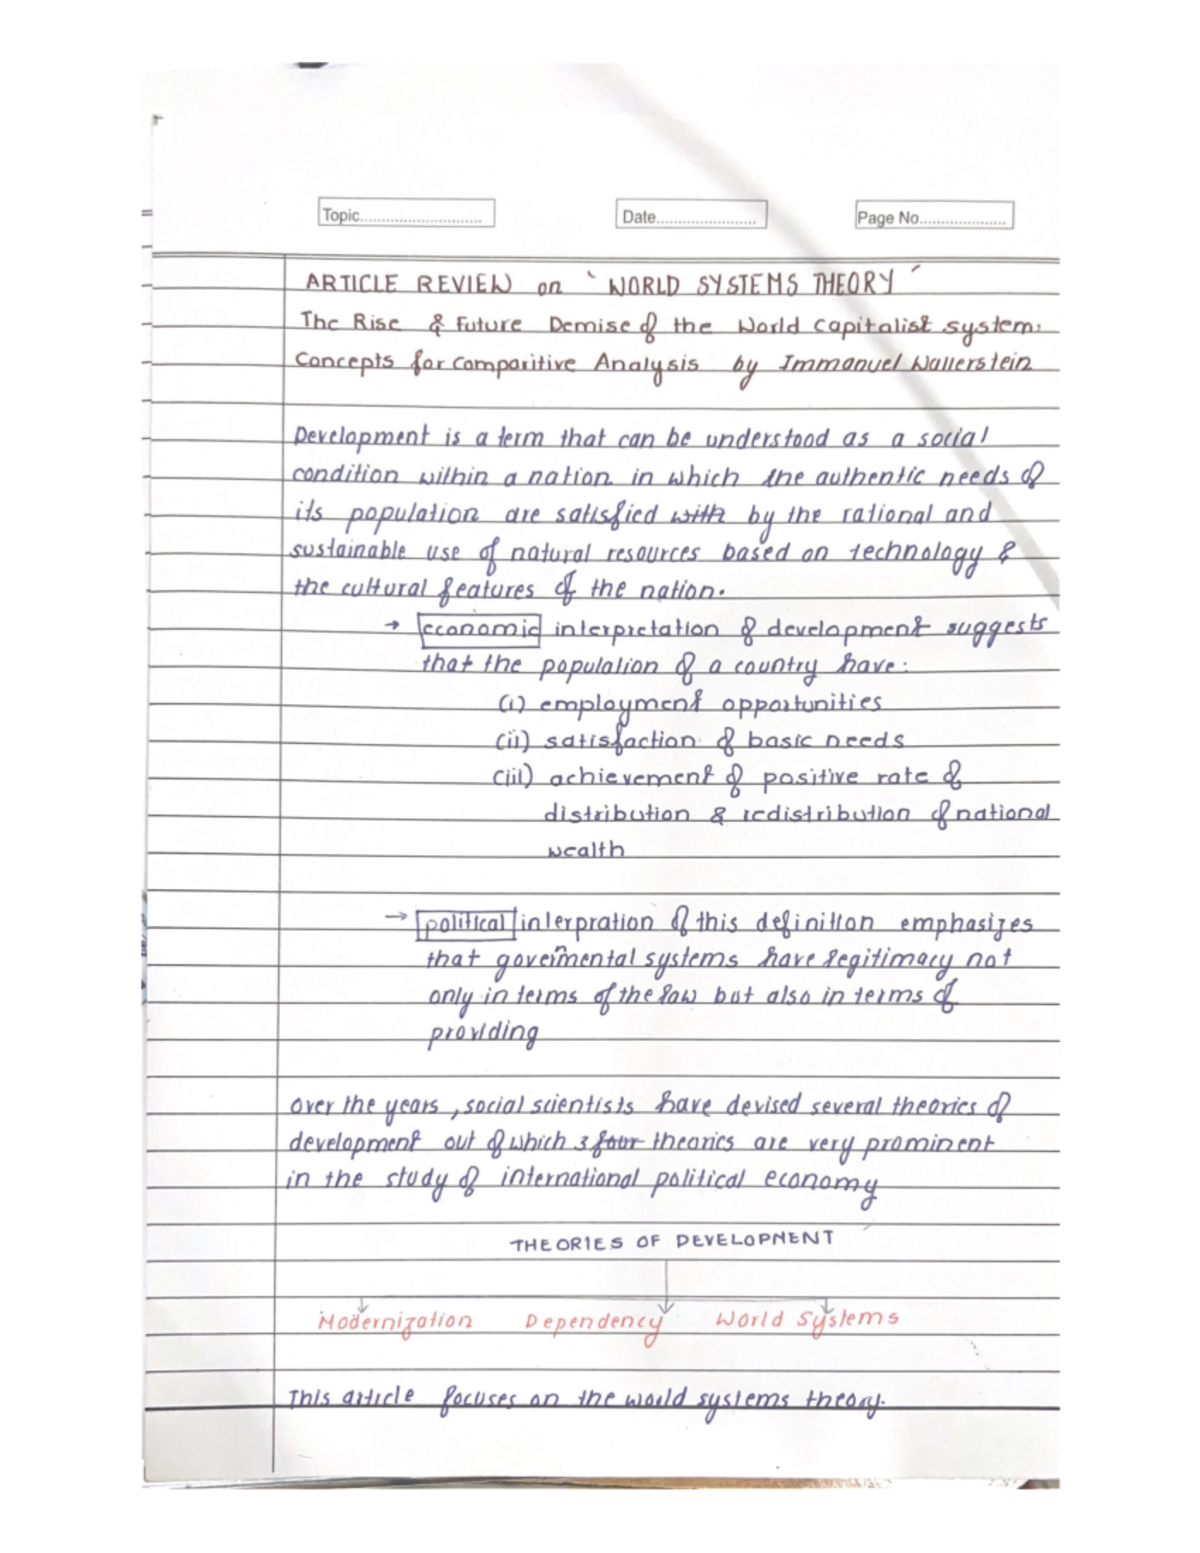 Topic............................
Date.......................
Page No....................
ARTICLE REVIEW on ` WORLD SYSTEMS THEORY ´
The Rise & Future Demise of the World Capitalist system:
Concepts for Comparitive Analysis by Immanuel Wallerstein
Development is a term that can be understood as a social
condition within a nation in which the authentic needs of
its population are satisfied with by the rational and
sustainable use of natural resources based on technology &
the cultural features of the nation.
→ economic interpretation of development suggests
that the population of a country have:
(i) employment opportunities
(ii) satisfaction of basic needs
(iii) achievement of positive rate of
distribution & redistribution of national
wealth
→ political interpration of this definition emphasizes
that governmental systems have legitimacy not
only in terms of the law but also in terms of
providing
over the years, social scientists have devised several theories of
development out of which 3 four theories are very prominent
in the study of international political economy
THEORIES OF DEVELOPMENT
Modernization Dependency World Systems
This article focuses on the world systems theory.